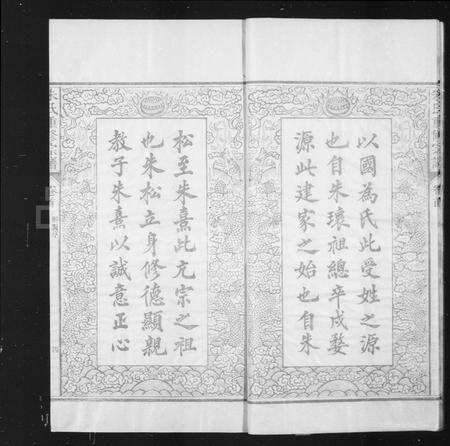 以國為氏此受姓之源
也自朱瓌祖總卒戍婺
源此建家之始也自朱
松至朱熹此亢宗之祖
也朱松立身修德顯親
教子朱熹以誠意正心